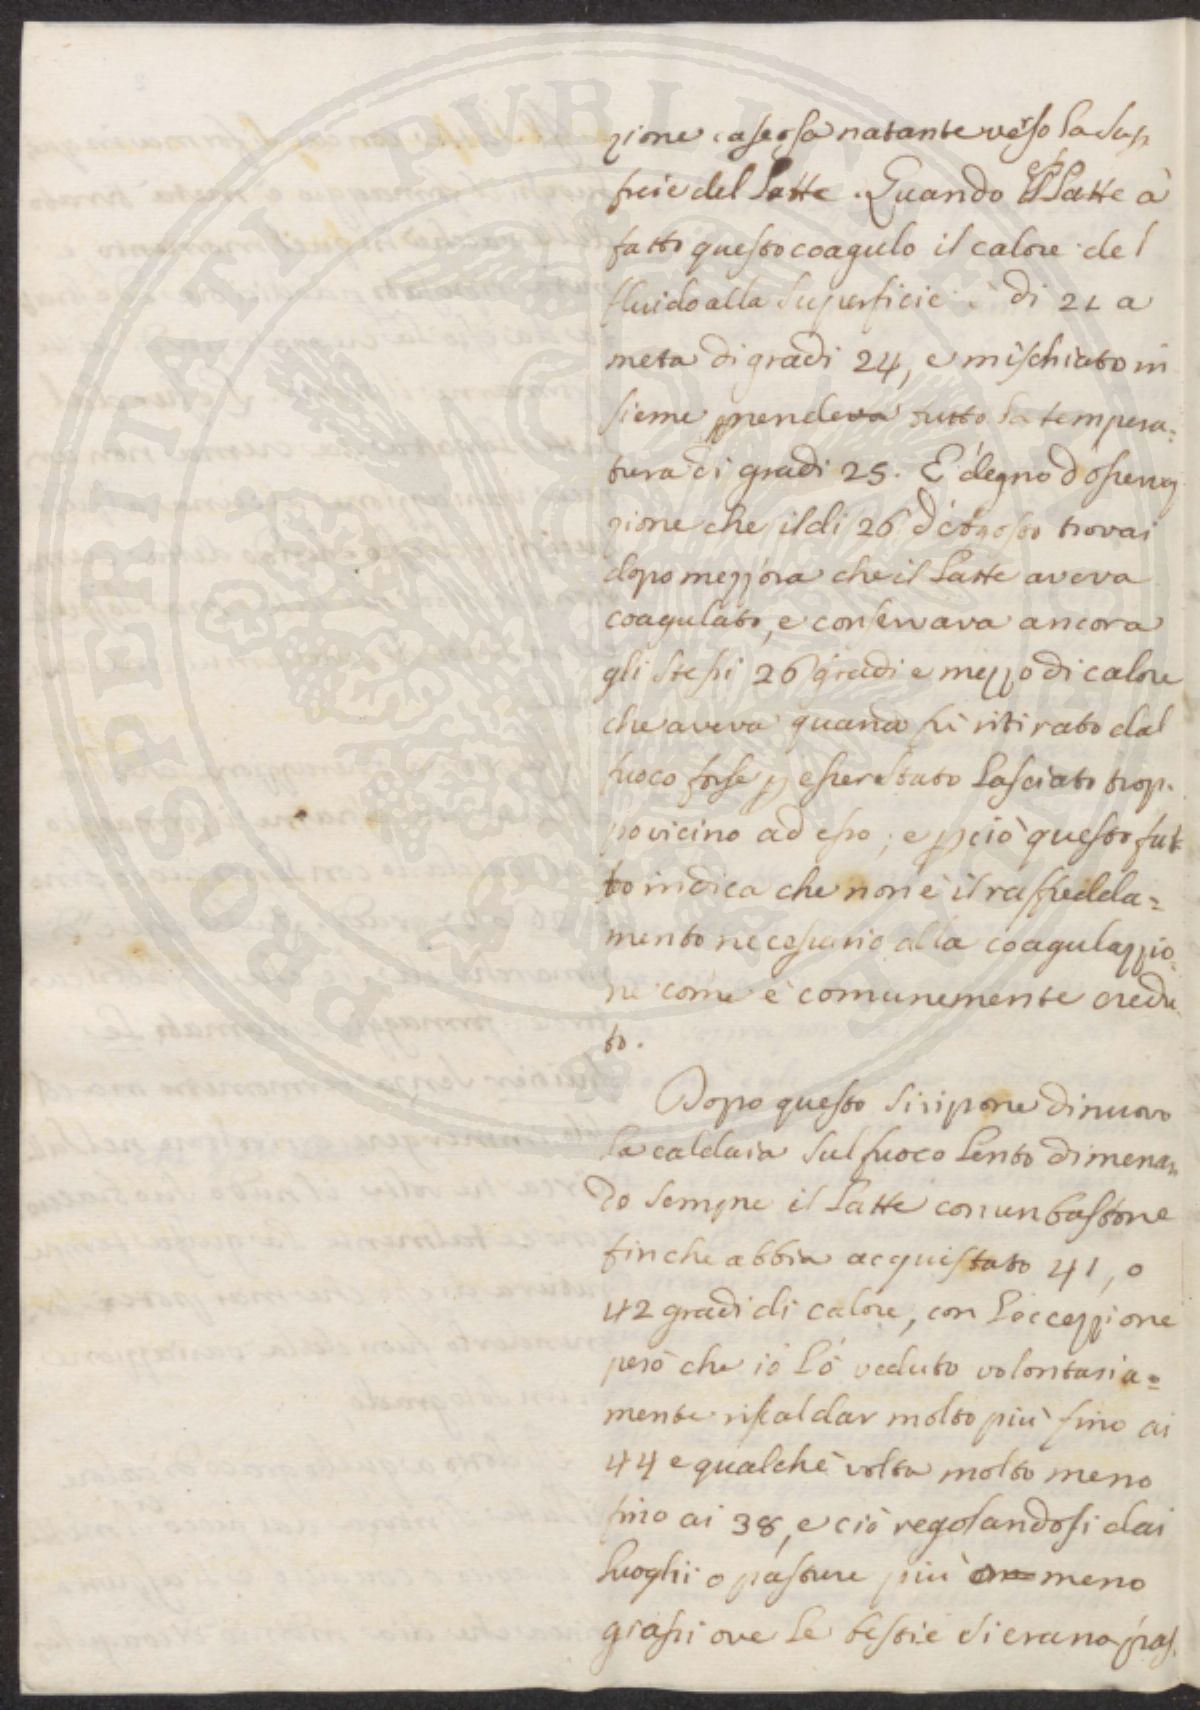 zione caseosa natante verso la Sup.
ficie del Latte. Quando il Latte à
fatto questo coagulo il calore del
fluido alla superficie è di 21 a
meta di gradi 24, e mischiato in
sieme prendeva tutto la tempera=
tura di gradi 25. E' degno d'osserva
zione che il di 26 d'Agosto trovai
dopo mezz'ora che il Latte aveva
coagulato, e conservava ancora
gli stessi 26 gradi e mezzo di calore
che aveva quando fù ritirato dal
fuoco forse p essere stato lasciato trop-
po vicino ad esso; e pciò questo fat
to indica che non è il raffredda=
mento necessario alla coagulazzio=
ne come è comunemente credu
to.
Dopo questo si ripone di nuovo
la caldaia sul fuoco lento dimenan
do sempre il Latte con un bastone
finche abbia acquistato 41, o
42 gradi di calore, con l'eccezzione
però che iò l'ò veduto volontaria=
mente riscaldar molto più fino ai
44 e qualche volta molto meno
fino ai 38, e ciò regolandosi dai
luoghi o pasture più o meno
grassi ove le bestie si erano pas.
PROSPERITATI PUBLICAE